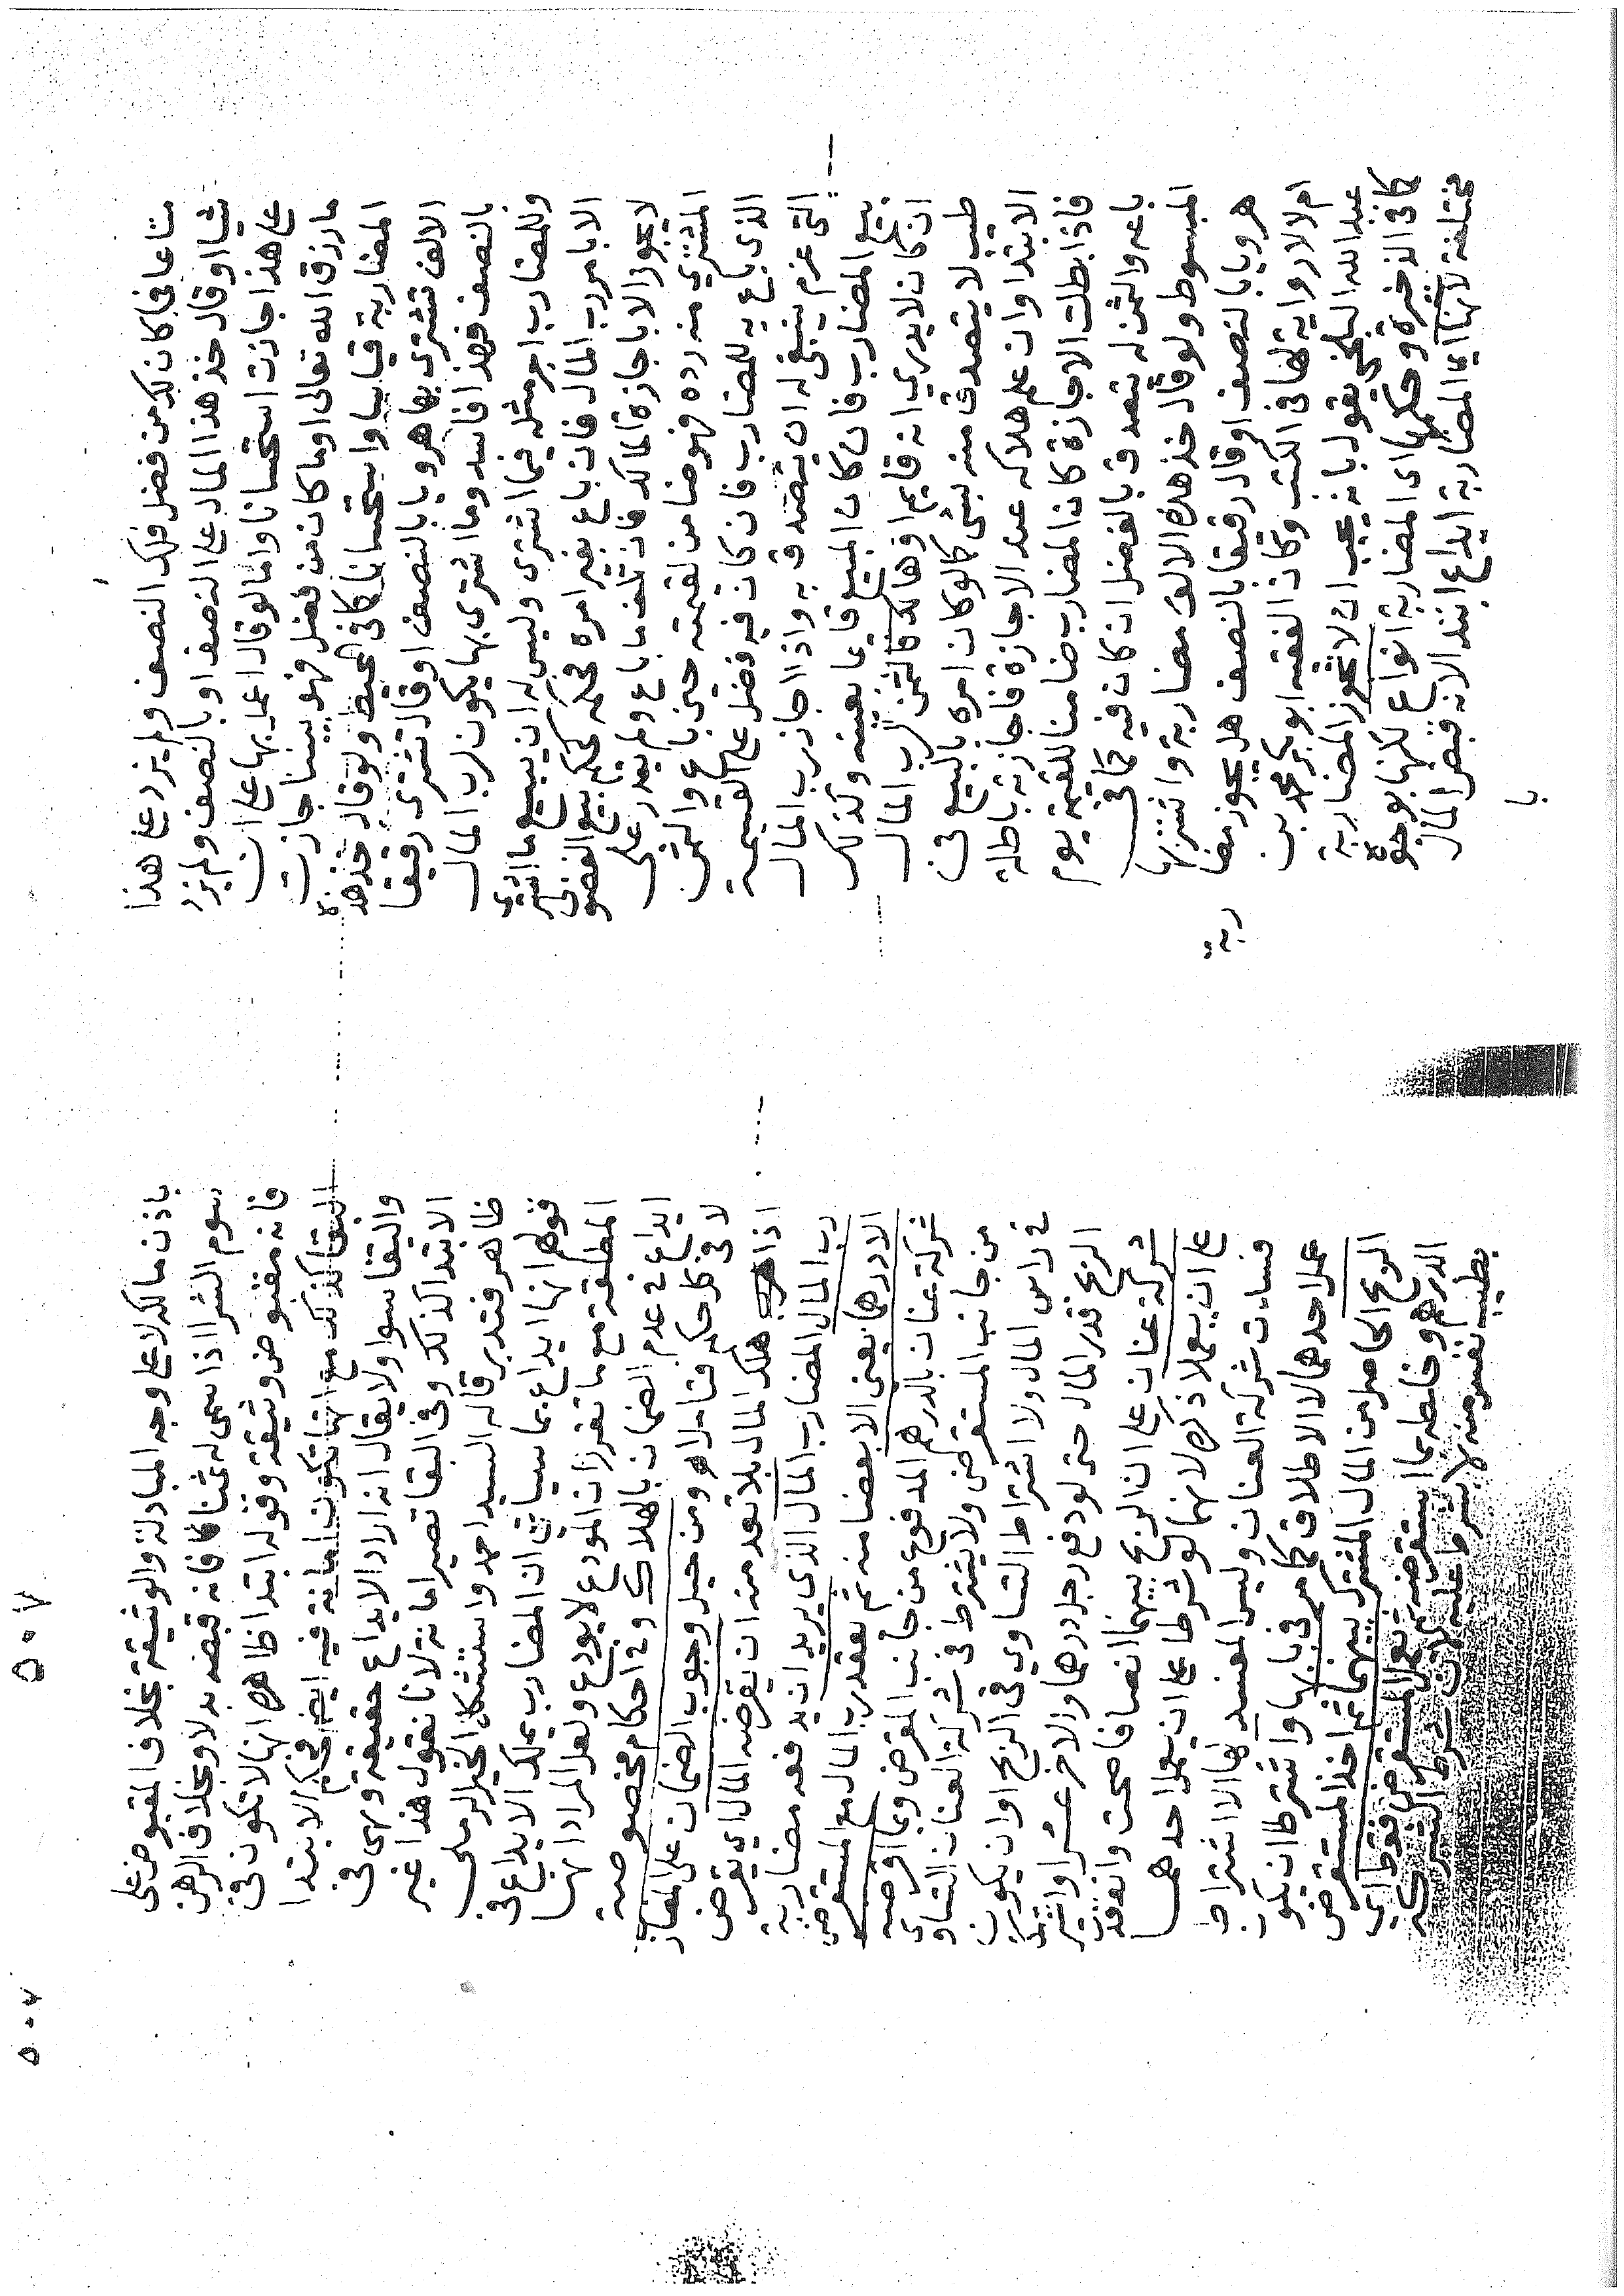 متاعا فما كان لك من فضل فلك النصف ولم يزد على هذا
شيا او قال خذ هذا المال على النصف او بالنصف ولم يزد
على هذا جازت استحسانا واما لو قال اعمل بها على ان
ما رزق الله تعالى او ما كان من فضل فهو بيننا جازت
المضاربة قياسا واستحسانا كما في المحيط ولو قال خذ هذه
الالف تشتري بها هرويا بالنصف او قال تشتري رقيقا
بالنصف فهذا فاسد وما اشترى بها يكون لرب المال
وللمضارب اجر مثله فيما اشترى وليس له ان يبيع ما اشترى
الا بامر رب المال فان باع بغير امره فحكمه كحكم بيع الفضولي
لا يجوز الا باجازة المالك فان تلف ما باع ولم يقدر على
المشتري منه رده فهو ضامن لقيمته حين باع والثمن
الذي باع به للمضارب فان كان فيه فضل على القيمة
التي غرم ينبغي له ان يتصدق به واذا اجاز رب المال
بيع المضارب فان كان المبيع قايما بعينه وكذلك
ان كان لا يدري انه قايم او هالك فالثمن لرب المال
طيب لا يتصدق منه بشي كما لو كان امره بالبيع في
الابتدا وان علم هلاكه عند الاجازة فاجازته باطلة
فاذا بطلت الاجازة كان المضارب ضامنا للقيمة يوم
باعه والثمن له يتصدق بالفضل ان كان فيه كما في
المبسوط ولو قال خذ هذه الالف مضاربة واشتر بها
هرويا بالنصف او قال رقيقا بالنصف هل يجوز مضا
ربة
ام لا لا رواية لها في الكتب وكان الفقيه ابو بكر محمد بن
عبد الله البلخي يقول بانه يجب ان لا تجوز المضاربة
كما في الذخيرة وحكمها اي المضاربة انواع لكنها بوجوه
مختلفة لانها اي المضاربة ايداع ابتدا لانه قبض المال
با
باذن مالكه لا على وجه المبادلة والوثيقة بخلاف المقبوض على
سوم الشرا اذا سمى له ثمنا فانه قبضه بدلا وبخلاف الرهن
فانه مقبوض وثيقة وقوله ابتدا ظاهره انها لا تكون في
البقا كذلك مع انها تكون امانة فيه ايضا فحكم الابتدا
والبقا سوا ولا يقال انه اراد الايداع حقيقة وهي في
الابتدا كذلك وفي البقا تصير امانة لانا نقول هذا غير
ظاهر فتدبر قاله السيد احمد واستشكل الخير الرملي
قولهم انها ايداع بما سياتي ان المضارب يملك الايداع في
المطلقة مع ما تقرر ان المودع لا يودع ولعل المراد انها
ايداع في عدم الضمان بالهلاك وفي احكام مخصوصة
لا في كل حكم فتامل اه ومن حيل وجوب الضمان على المضارب
اذا هلك المال بلا تعد منه ان يقرضه المال اي يقرض
رب المال المضارب المال الذي يريد ان يدفعه مضاربة
الا درهما يعني الا بعضا منه ثم يعقد رب المال مع المستقرض
شركة عنان بالدرهم المدفوع من جانب المقرض وبما اقرضه
من جانب المستقرض ولا يشترط في شركة العنان التساوي
في راس المال ولا اشتراط التساوي في الربح او ان يكون
الربح قدر المال حتى لو دفع رجل درهما والاخر عشرا واشتركا
شركة عنان على ان الربح بينهما انصافا صحت وانعقدت
على ان يعملا ذكره لانهما لو شرطا على ان يعمل احدهما
فسدت شركة العنان وليس المفسد لها الا اشتراط
عمل احدهما لا الاطلاق كما مر في بابها واشترطا ان يكون
الربح الحاصل من المال المشترك بينهما ثم اخذ المستقرض
الدرهم وخلطه بما استقرضه ثم يعمل المستقرض فقط اي
بطيب نفس منه لا بشرط عليه لان شرط الشركة
٥٠٧
٥٠٧